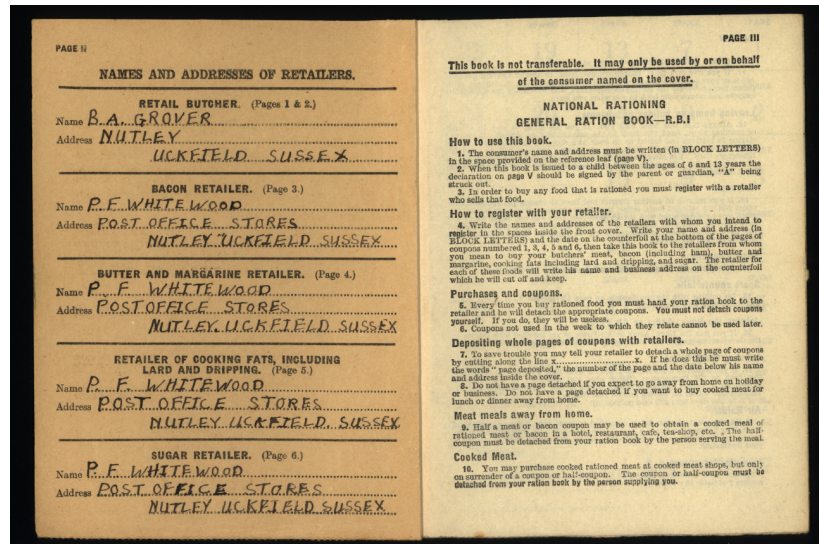 PAGE ii
NAMES AND ADDRESSES OF RETAILERS.
RETAIL BUTCHER. (Pages 1 & 2.)
Name B.A. GROVER
Address NUTLEY
UCKFIELD SUSSEX
BACON RETAILER. (Page 3.)
Name P. F. WHITEWOOD
Address POST OFFICE STORES
NUTLEY UCKFIELD SUSSEX
BUTTER AND MARGARINE RETAILER. (Page 4.)
Name P. F WHITEWOOD
Address POST OFFICE STORES
NUTLEY. UCKFIELD SUSSEX
RETAILER OF COOKING FATS, INCLUDING
LARD AND DRIPPING. (Page 5.)
Name P. F. WHITEWOOD
Address POST OFFICE STORES
NUTLEY UCKFIELD. SUSSEX
SUGAR RETAILER. (Page 6.)
Name P. F WHITEWOOD
Address POST OFFICE STORES
NUTLEY UCKFIELD SUSSEX
PAGE III
This book is not transferable. It may only be used by or on behalf
of the consumer named on the cover.
NATIONAL RATIONING
GENERAL RATION BOOK—R.B.1
How to use this book.
1. The consumer's name and address must be written (in BLOCK LETTERS)
in the space provided on the reference leaf (page V).
2. When this book is issued to a child between the ages of 6 and 13 years the
declaration on page V should be signed by the parent or guardian, "A" being
struck out.
3. In order to buy any food that is rationed you must register with a retailer
who sells that food.
How to register with your retailer.
4. Write the names and addresses of the retailers with whom you intend to
register in the spaces inside the front cover. Write your name and address (in
BLOCK LETTERS) and the date on the counterfoil at the bottom of the pages of
coupons numbered 1, 3, 4, 5 and 6, then take this book to the retailers from whom
you mean to buy your butchers' meat, bacon (including ham), butter and
margarine, cooking fats including lard and dripping, and sugar. The retailer for
each of these foods will write his name and business address on the counterfoil
which he will cut off and keep.
Purchases and coupons.
5. Every time you buy rationed food you must hand your ration book to the
retailer and he will detach the appropriate coupons. You must not detach coupons
yourself. If you do, they will be useless.
6. Coupons not used in the week to which they relate cannot be used later.
Depositing whole pages of coupons with retailers.
7. To save trouble you may tell your retailer to detach a whole page of coupons
by cutting along the line x..............................x. If he does this he must write
the words " page deposited," the number of the page and the date below his name
and address inside the cover.
8. Do not have a page detached if you expect to go away from home on holiday
or business. Do not have a page detached if you want to buy cooked meat for
lunch or dinner away from home.
Meat meals away from home.
9. Half a meat or bacon coupon may be used to obtain a cooked meal of
rationed meat or bacon in a hotel, restaurant, cafe, tea-shop, etc. The half-
coupon must be detached from your ration book by the person serving the meal
Cooked Meat.
10. You may purchase cooked rationed meat at cooked meat shops, but only
on surrender of a coupon or half-coupon. The coupon or half-coupon must be
detached from your ration book by the person supplying you.